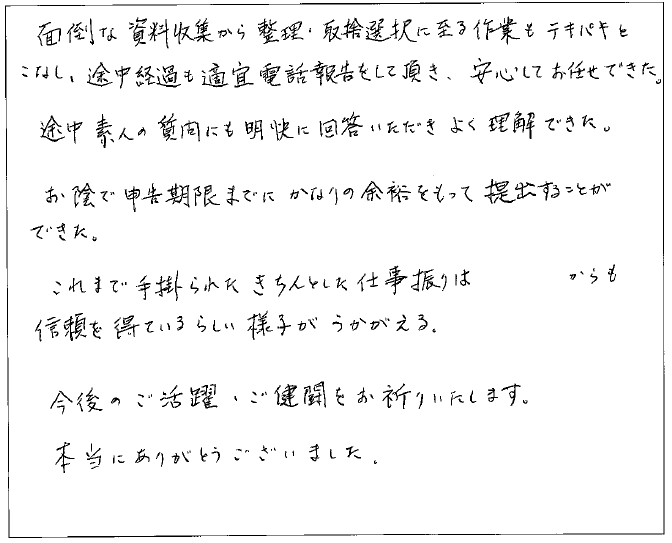 面倒な資料収集から整理・取捨選択に至る作業もテキパキと
こなし、途中経過も適宜電話報告をして頂き、安心してお任せできた。
途中素人の質問にも明快に回答いただきよく理解できた。
お陰で申告期限までにかなりの余裕をもって提出することが
できた。
これまで手掛られたきちんとした仕事振りは からも
信頼を得ているらしい様子がうかがえる。
今後のご活躍、ご健闘をお祈りいたします。
本当にありがとうございました。